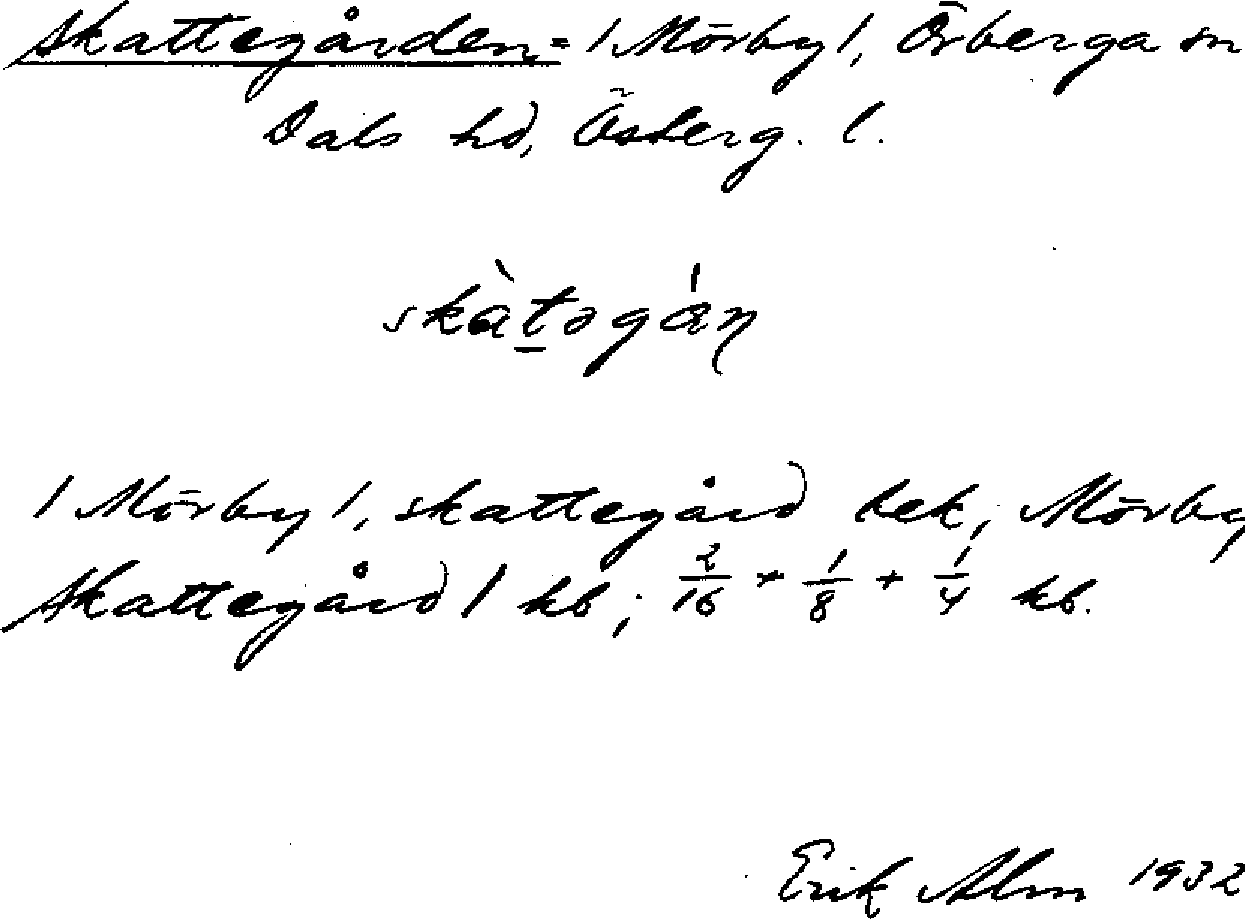 Skattegården = / Mörby /, Örberga sn
Dals hd, Österg. l.
skàtəgán
/ Mörby /, skattegård bek, Mörby
skattegård / kb; 2/16 + 1/8 + 1/4 kb.
Erik Alm 1932